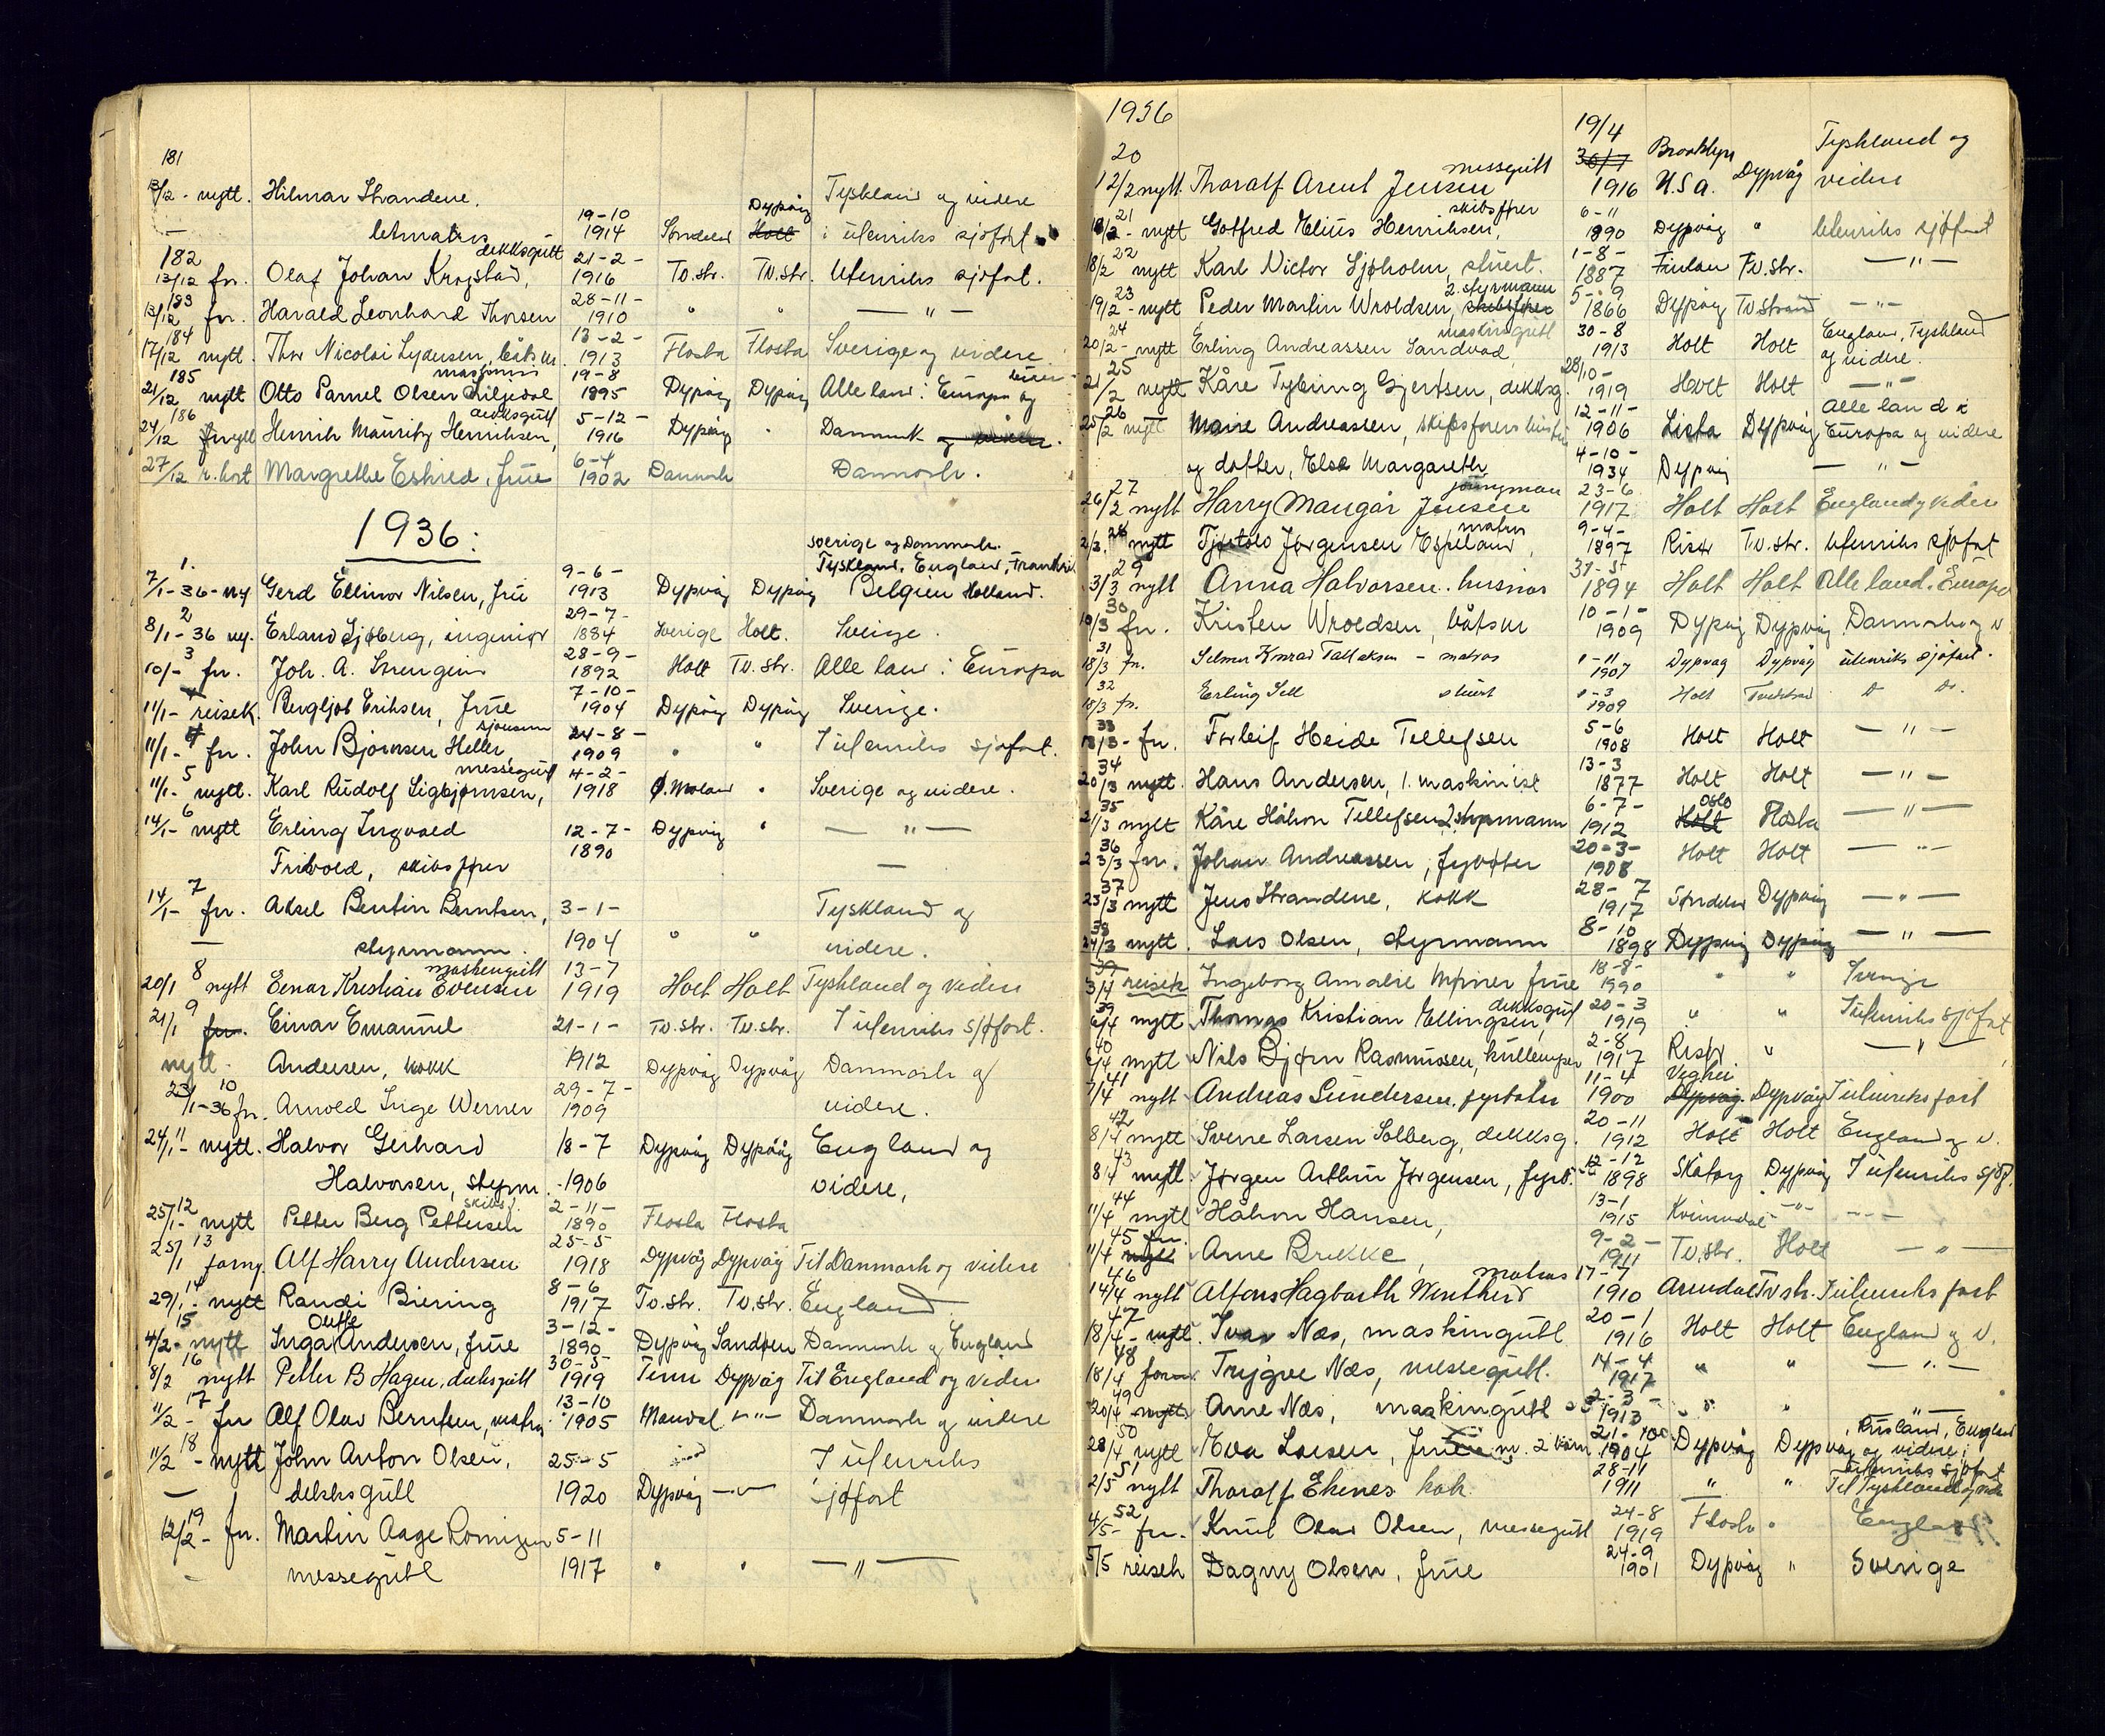 181
13/12 - nytt. Hilmar Strandene. Tyskland og videre
— letmatros 19-10 1914 Søndeled Dypvåg Holt i utenriks sjøfart.
182 dekksgutt
13/12 fn. Olaf Johan Krogstad, 21-2- 1916 Tv.str. Tv.str. Utenriks sjøfart.
183
13/12 fn. Harald Leonhard Thorsen 28-11- 1910 " " — " —
184
17/12 nytt. Thor Nicolai Lydersen, båtsm. 13-2- 1913 Flosta Flosta Sverige og videre.
185
21/12 nytt Otto Parnel Olsen 19-8 1895 Dypvåg Dypvåg Alle land i Europa og videre
186 dekksgutt
24/12 nytt Henrik Mauritz Henriksen, 5-12- 1916 Dypvåg " Danmark og videre.
27/12 r.kort Margrethe Eskred, frue 6-4 1902 Danmark Danmark.
1936:
Sverige og Danmark.
1. Tyskland, England, Frankrik
7/1-36- ny Gerd Ellinor Nilsen, fru 9-6- 1913 Dypvåg Dypvåg Belgien Holland.
2
8/1-36 ny. Erland Sjøberg, ingeniør 29-7- 1884 Sverige Holt. Sverige.
3
10/- fn. Joh. A. Strengen 28-9- 1892 Holt Tv.str. Alle land i Europa
11/1- reisek. Bergljot Eriksen, frue 7-10- 1904 Dypvåg Dypvåg Sverige.
4
11/1- fn. John Bjørnsen Heller 24-8- 1909 " " I utenriks sjøfart.
5 messegutt
11/1- nytt. Karl Rudolf Sigbjørnsen, 4-2- 1918 Ø.Moland " Sverige og videre.
6
14/1- nytt Erling Ingvald 12-7- Dypvåg " — " —
Frivold, skibsfører 1890 —
7
14/1- fn. Aksel Bentin Berntsen, 3-1- Tyskland og
— styrmann. 1904 " " videre.
8 maskingutt
20/1 nytt Einar Kristian Evensen 13-7 1919 Holt Holt Tyskland og videre
9
21/1 fn. Einar Emanuel 21-1- Tv.str. Tv.str. I utenriks sjøfart.
nytt. Andersen, kokk 1912 Dypvåg Dypvåg Danmark og
10
23/1-36 fn. Arnold Inge Werner 29-7- 1909 videre.
11
24/1- nytt. Halvor Gerhard 18-7 Dypvåg Dypvåg England og
Halvorsen, styrm. -1906 videre,
12 skibsf.
25/1- nytt Petter Berg Pettersen 2-11- 1890 Flosta Flosta
13
25/1 forny. Alf Harry Andersen 25-5 1918 Dypvåg Dypvåg Til Danmark og videre
14
29/1- nytt Randi Biering 8-6 1917 Tv.str. Tv.str. England
15
4/2- nytt Inga Andersen, frue 3-12- 1890 Dypvåg Sandøen Danmark og England
16
8/2 nytt Petter B Hagen, dekksgutt 30-5- 1919 Dypvåg Til England og videre
17
11/2- fn Alf Olav Berntsen, matros 13-10 1905 Mandal — " — Danmark og videre
18
11/2 - nytt John Anton Olsen, 25-5 I utenriks
— dekksgutt 1920 Dypvåg — " — sjøfart
19
12/2- fn. Martin Aage 5-11
messegutt 1917 " " — " —
1936
20 messegutt 19/4 30/7 Brooklyn Tyskland og
12/2 nytt. Thoralf Arent Jensen 1916 U.S.a. Dypvåg videre
21 skibsfører
18/2- nytt Gotfred Elius Henriksen, 6-11 1890 Dypvåg " Utenriks sjøfart
22
18/2 nytt Karl Victor Sjøholm, stuert. 1-8- 1887 Finland Tv.str. — " —
23 2. styrmann
19/2- nytt Peder Martin Wroldsen, skibsfører 5-9 1866 Dypvåg Tv.strand — " —
24 maskingutt
20/2- nytt Erling Andreassen Sandvad 30-8 1913 Holt Holt England, Tyskland og videre.
25
21/2 nytt Kåre Tybring Gjertsen, dekksg. 28/10- 1919 Holt Holt — " —
26
25/2 nytt Marie Andreassen, skibsførers hustru 12-11- 1906 Lista Dypvåg Alle land i Europa og videre
og datter, Else Margareth 4-10- 1934 Dypvåg — " —
27 jungmann
26/2 nytt Harry Mangår Jensen 23-6 1917 Holt Holt England og videre
28 matros
2/3. nytt Tjøstolv Jørgensen Espeland, 9-4- 1897 Risør Tv.str. Utenriks sjøfart
29
3/3 nytt Anna Halvorsen. husmor 31-5- 1894 Holt Holt Alle land i Europa
30
10/3 fn. Kristen Wroldsen, båtsm 10-1- 1909 Dypvåg Dypvåg Danmark og v
31
18/3 fn. Selmer Konrad Tallaksen - matros 1-11 1907 Dypvåg Dypvåg utenriks sjøfart.
32
18/3 fn. Erling Sell stuert 1-3 1909 Holt Tvedestrand Do Do.
33
18/3- fn. Torleif Heide Tellefsen 5-6 1908 Holt Holt — " —
34
20/3 nytt. Hans Andersen, 1. maskinist 13-3 1877 Holt Holt — " —
35
21/3 nytt Kåre Håkon Tellefsen 2 styrmann 6-7- 1912 Oslo Holt Flosta — " —
36
23/3 fn. Johan Andreassen, fyrbøter 20-3- 1908 Holt Holt — " —
37
23/3 nytt Jens Strandene, kokk 28-7 1917 Søndeled Dypvåg — " —
38
24/3 nytt. Lars Olsen, styrmann 8-10 1898 Dypvåg Dypvåg — " —
39
3/4 reisek Ingeborg Amalie frue 18-8- 1990 " " Sverige
39 dekksgut
6/4 nytt Thomas Kristian Ellingsen, 20-3 1919 " " I utenriks sjøfart
40
6/4 nytt Nils Bjørn Rasmussen, kullemper 2-8- 1917 Risør " — " —
41
7/4 nytt Andreas Gundersen, fyrbøter 11-4 1900 Veghei Dypvåg. Dypvåg I utenriksfart
42
8/4 nytt Sverre Larsen Solberg, dekksg. 20-11 1912 Holt Holt England og v.
43
8/4 nytt Jørgen Arthur Jørgensen, fyrb. 12-12 1898 Skåtøy Dypvåg I utenriks sjøf.
44
11/4 nytt Håkon Hansen, 13-1 1915 Kvinesdal — " — — " —
45 fn.
11/4 nytt Arne Brekke, 9-2- 1911 Tv.str. Holt — " —
46 matros
14/4 nytt Alfons Hagbarth Wintherd 17-7 1910 Arendal Tv str. I utenriks fart
47
18/4- nytt. Ivar Næs, maskingutt 20-1 1916 Holt Holt England og v.
48
18/4 forn. Trygve Næs, messegutt. 14-4 1917 " " — " —
49
20/4 nytt Arne Næs, maskingutt 2-3- 1913 " " — " —
50
28/4 nytt Eva Larsen, frue m. 2 barn 21-10 1904 Dypvåg Dypvåg Rusland, England og videre i
51 utenriks sjøfart
2/5 nytt Thoralf Ekenes kok 28-11 1911 " " Til Tyskland og vid
52
4/5- fn. Knut Olav Olsen, messegutt 24-8 1919 Flosta " England
5/5 reisek Dagny Olsen, frue 24-9 1901 Dypvåg " Sverige